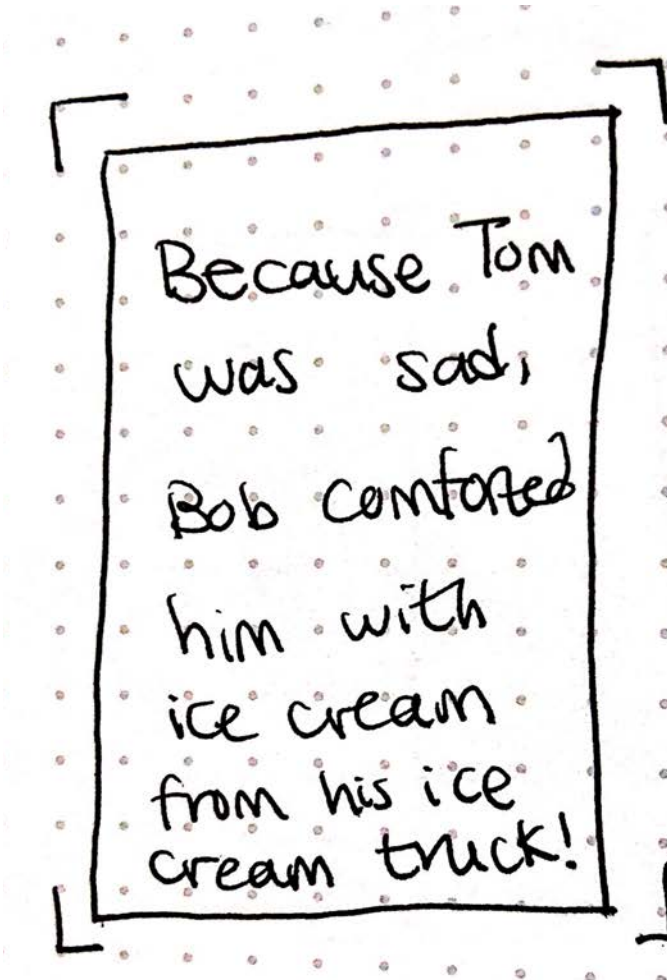 Because Tom
was sad,
Bob comforted
him with
ice cream
from his ice
cream truck!